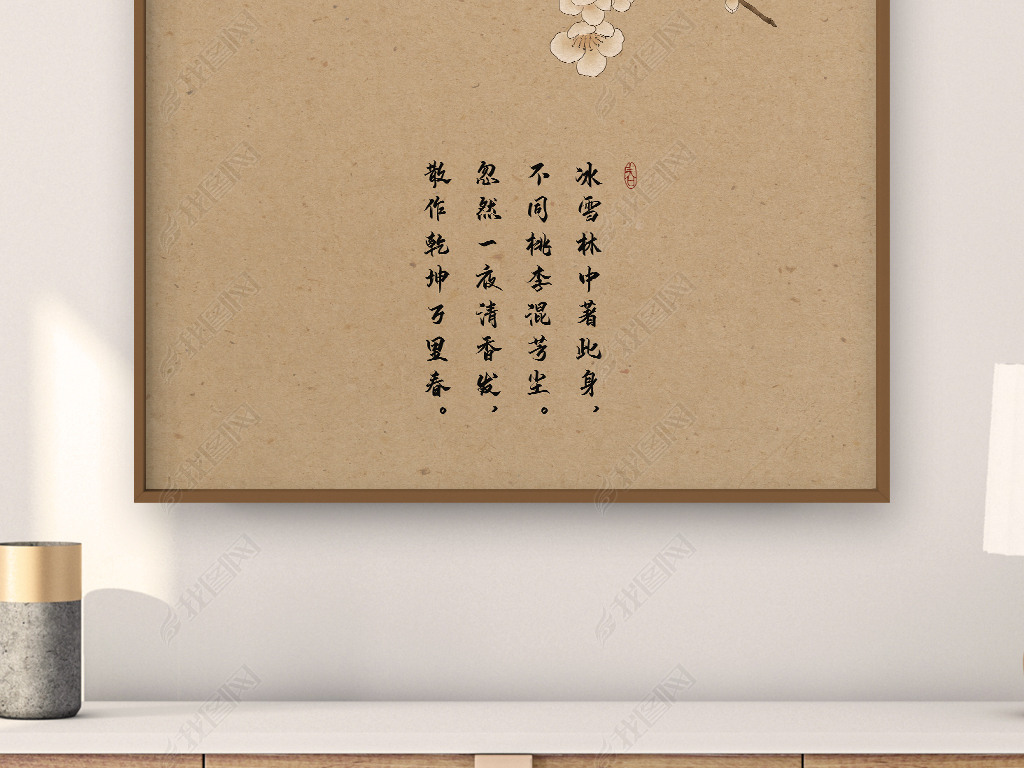 冰雪林中著此身，
不同桃李混芳尘。
忽然一夜清香发，
散作乾坤万里春。
找图网